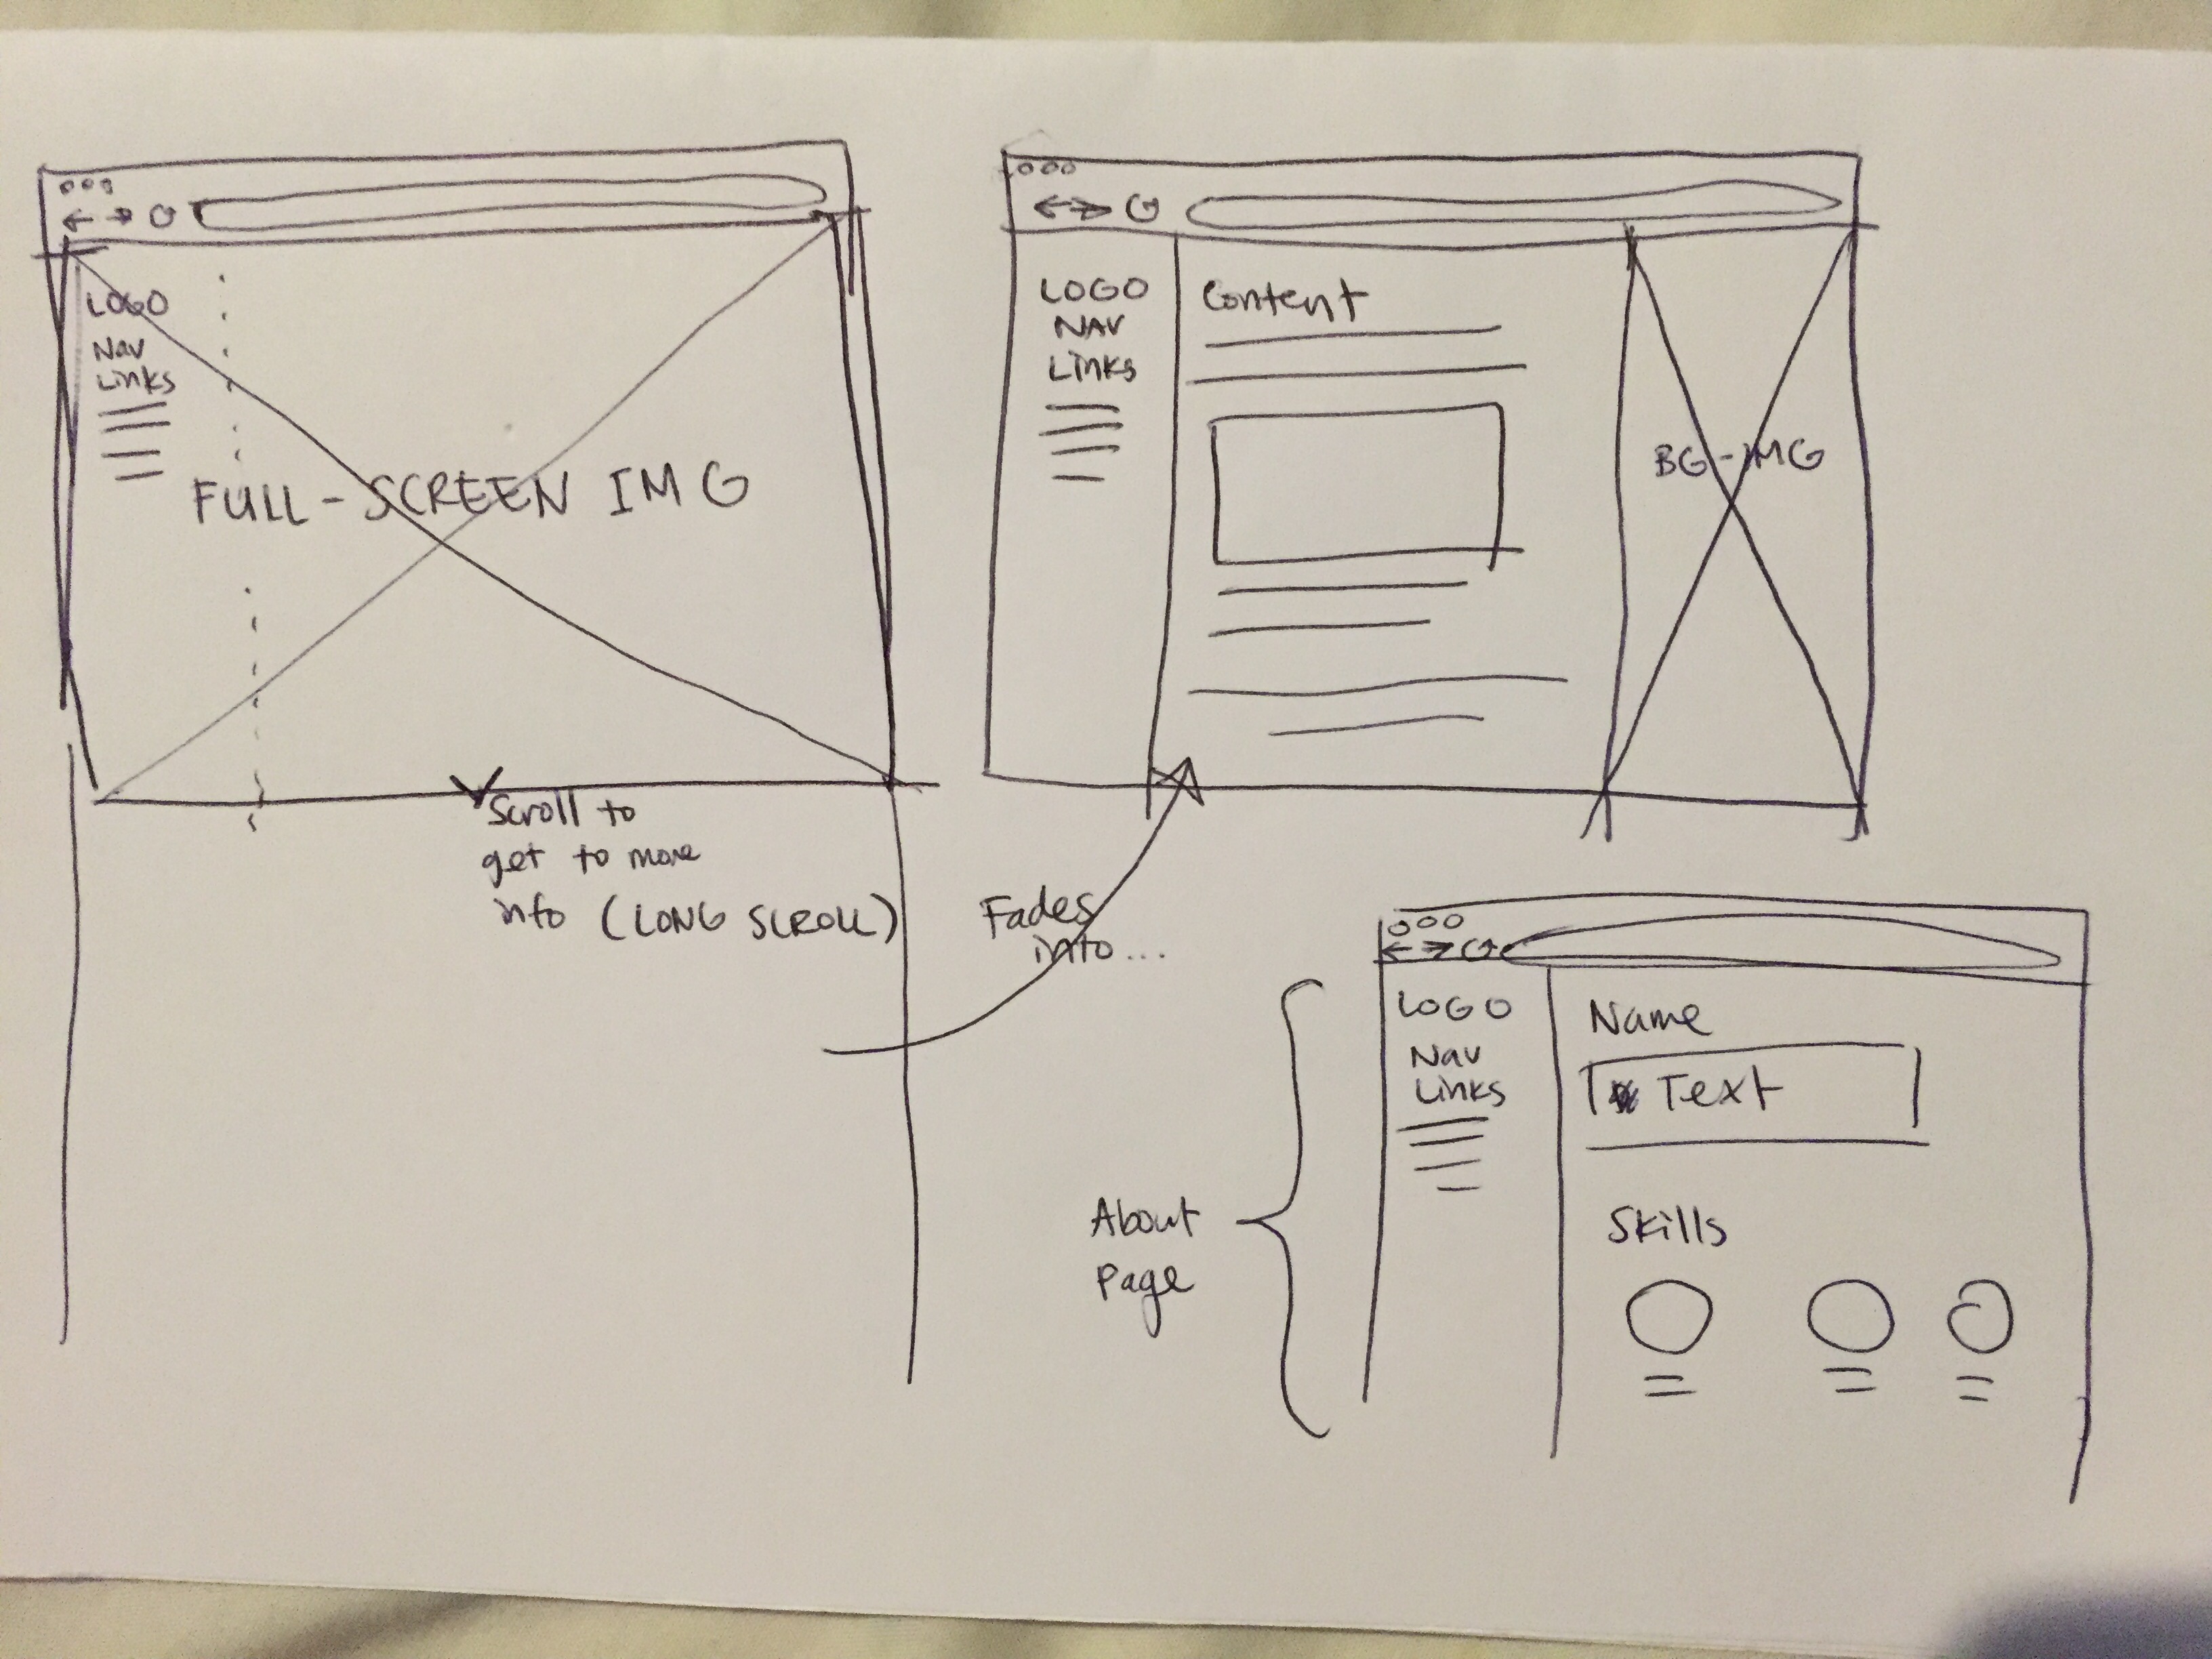 LOGO
Nav
Links
FULL-SCREEN IMG
Scroll to
get to more
info (LONG SCROLL)
LOGO
NAV
Links
Content
BG-IMG
Fades
into...
About
Page
LOGO
Nav
Links
Name
Text
Skills